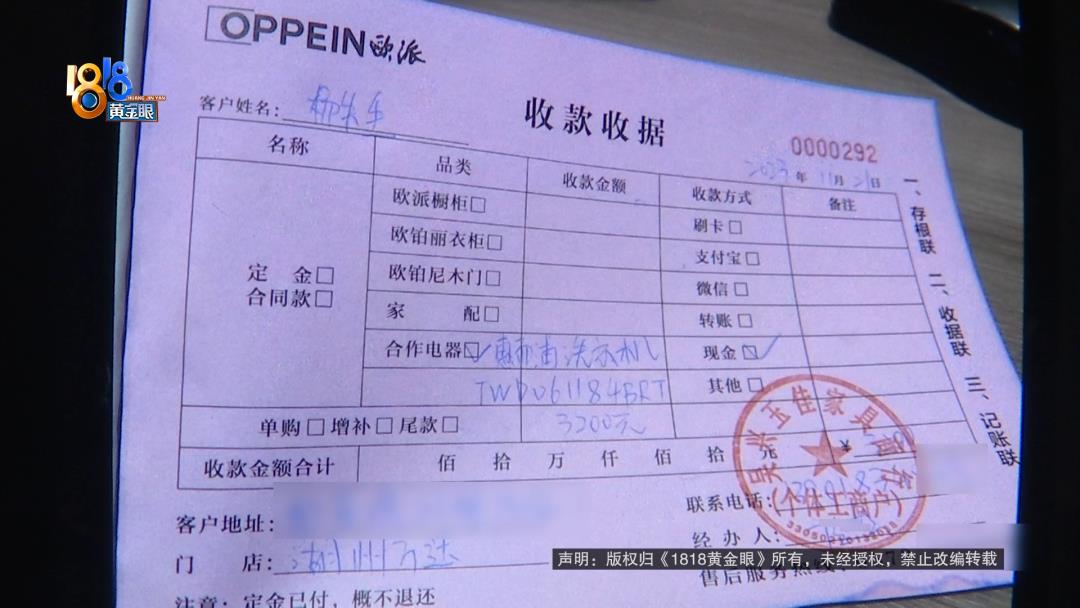 OPPEIN欧派
1818
HUANG JIN YAN
黄金眼
客户姓名：
收款收据
0000292
2023年11月21日
名称 品类 收款金额 收款方式 备注
定金□
合同款□
欧派橱柜□ 刷卡□
欧铂丽衣柜□ 支付宝□
欧铂尼木门□ 微信□
家配□ 转账□
合作电器☑ 惠而浦洗衣机 现金☑
TWD061184BRT 其他□
单购□增补□尾款□ 3200元
收款金额合计 佰 拾 万 仟 佰 拾 元 ¥
一、存根联 二、收据联 三、记账联
客户地址：
联系电话：
门店：湖州万达
经办人：
注意：定金已付，概不退还
吴兴玉佳家具商行
（个体工商户）
声明：版权归《1818黄金眼》所有，未经授权，禁止改编转载